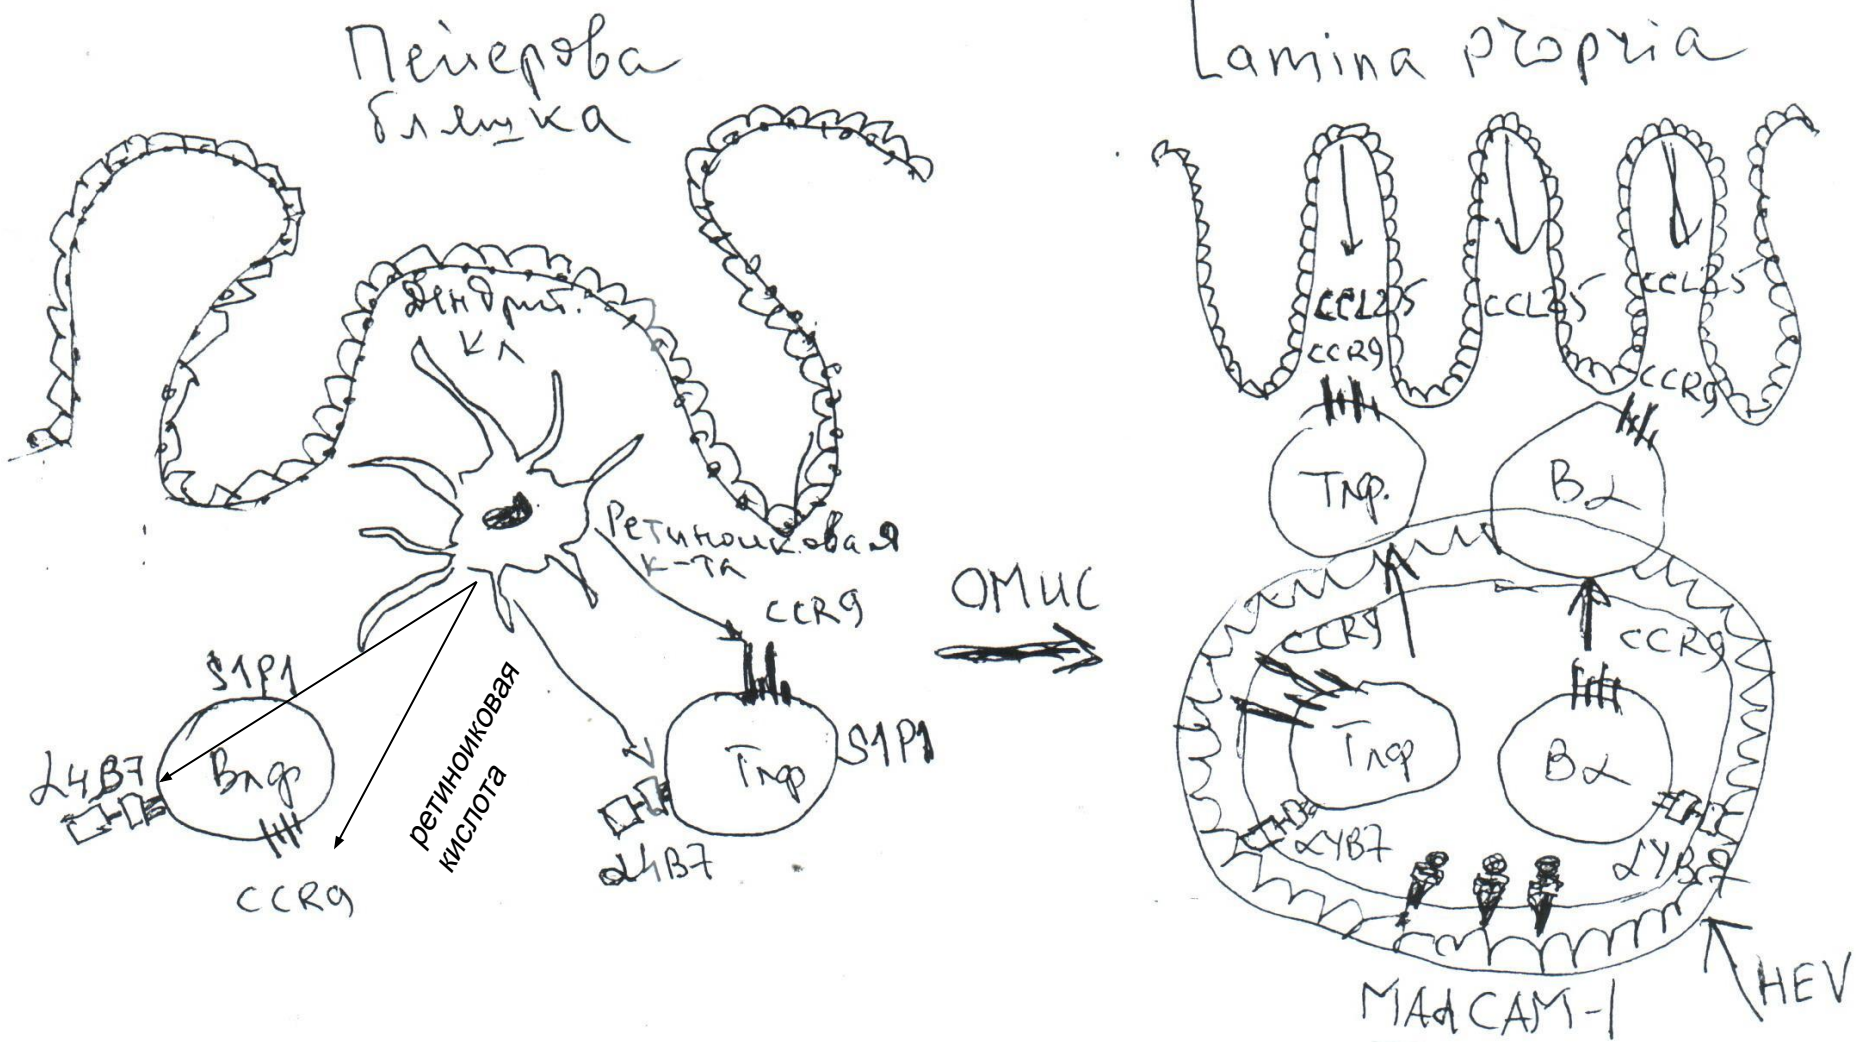 Пейерова
бляшка
Дендрит.
кл
Ретиноиковая
к-та
CCR9
S1P1
S1P1
α4B7
Влф
CCR9
ретиноиковая
кислота
Тлф
α4B7
ОМИС
Lamina propria
CCL25
CCL25
CCL25
CCR9
CCR9
Тлф.
Вл
CCR9
CCR9
Тлф
Вл
α4B7
α4B7
MAdCAM-1
HEV